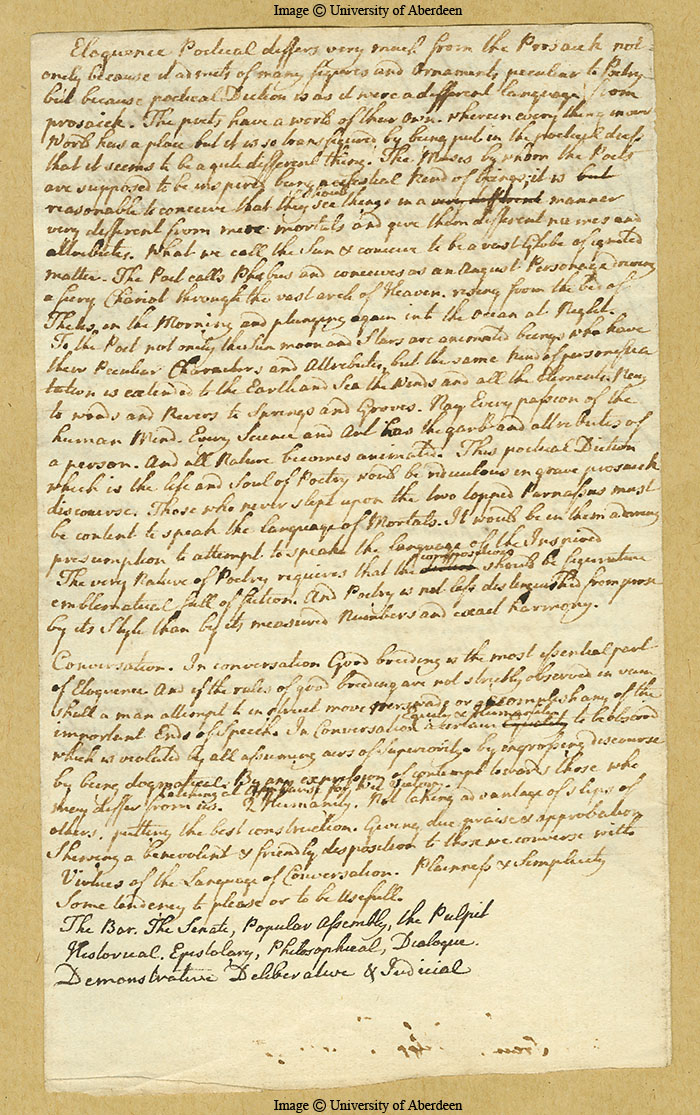 Image © University of Aberdeen
Eloquence Poetical differs very much from the Prosaick not
only because it admits of many figures and Ornaments peculiar to Poetry
but because poetical Diction is as it were a different language from
prosaick. The poets have a world of their own. wherein every thing in our
World has a place but it is so transfigured by being put in the poetical dress
that it seems to be a quite different thing. The Muses by whom the Poets
are supposed to be inspired, being a celestial kind of beings; it is but
reasonable to conceive that they see things in a very different manner
very different from mere mortals and give them different names and
attributes. What we call the Sun & conceive to be a vast Globe of ignited
matter. The Poet calls Phœbus and conceives as an August Personage driving
a fiery Chariot through the vast arch of Heaven. rising from the bed of
Thetis in the Morning and plunging again into the Ocean at Night.
To the Poet not only the Sun moon and Stars are animated beings who have
their Peculiar Characters and Attributes, but the same kind of personifica
tation is extended to the Earth and Sea the Winds and all the Elements. Nay
to woods and Rivers to Springs and Groves. Nay Every passion of the
human Mind. Every Science and Art has the garb and attributes of
a person. And all Nature becomes animated. This poetical Diction
which is the life and Soul of Poetry would be ridiculous in grave prosaick
discourse. Those who never slept upon the two topped Parnassus must
be content to speak the language of Mortals. It would be in them a daring
presumption to attempt to speak the language of the Inspired
composition
The very Nature of Poetry requires that the diction should be figurative
emblematical full of fiction. And Poetry is not less distinguished from prose
by its Style than by its measured Numbers and exact harmony.
Conversation. In conversation Good breeding is the most essential part
of Eloquence And if the rules of good breeding are not strictly observed in vain
shall a man attempt to instruct move perswade or accomplish any of the
Equity & Humanity
important Ends of Speech. In Conversation a certain Equality to be observd
which is violated by all assuming airs of Superiority. by ingrossing discourse
by being dogmatical. By any expression of contempt towards those who
may differ from us. 2 Humanity. Not taking advantage of slips of
others. putting the best construction. Giving due praise & approbation
Shewing a benevolent & friendly disposition to those we converse with
Virtues of the Language of Conversation. Plainness & Simplicity
Some tendency to please or to be Usefull.
The Bar. The Senate, Popular Assembly, the Pulpit
Historical. Epistolary, Philosophical, Dialogue.
Demonstrative Deliberative & Judicial
Image © University of Aberdeen